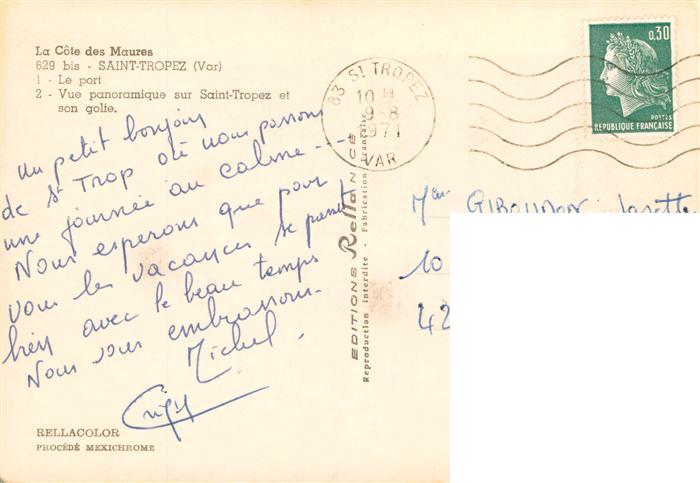 La Côte des Maures
629 bis - SAINT-TROPEZ (Var)
1 - Le port
2 - Vue panoramique sur Saint-Tropez et
son golfe.
Un petit bonjour
de St Trop où nous passons
une journée au calme ---
Nous esperons que pour
vous les vacances se passent
bien avec le beau temps
Nous vous embrassons.
Michel.
RELLACOLOR
PROCÉDÉ MEXICHROME
EDITIONS Rella NICE
Reproduction interdite - Fabrication Française
83 ST TROPEZ
10 H
9-8
1971
VAR
0,30
POSTES
REPUBLIQUE FRANÇAISE
10
42